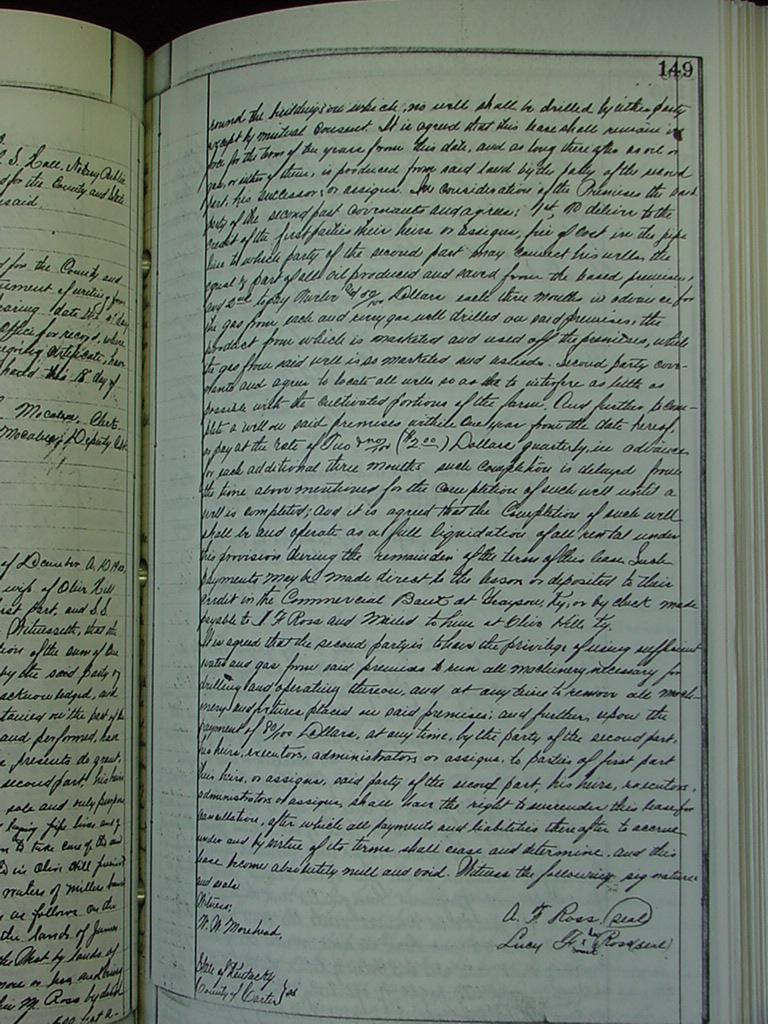 149
S. Hall, Notary Public
for the County and State
said.
for the County and
office for record,
certificate, have
hand this 18 day of
Clerk
Deputy Clk.
of December A.D.
wife of Olive Hill
part, and S.S.
Witnesseth, that the
of the sum of One
by the said party of
acknowledged, and
on the part of the
and performed, has
presents do grant
second part, his heirs
sole and only purpose
laying pipe lines and of
to take care of the said
in Olive Hill precinct
waters of
as follows on the
the lands of James
the West by lands of
more or less and being
M. Ross by deed
round the buildings on which no well shall be drilled by either party
except by mutual consent. It is agreed that this lease shall remain in
force for the term of years from this date, and as long thereafter as oil or
gas, or either of them, is produced from said land by the party of the second
part, his successors or assigns. In consideration of the Premises the said
party of the second part covenants and agrees: 1st, To deliver to the
credit of the first parties their heirs or assigns, free of cost in the pipe
line to which party of the second part may connect his wells, the
equal part of all oil produced and saved from the leased premises,
and 2nd to pay Dollars each three months in advance for
the gas from each and every gas well drilled on said premises, the
product from which is marketed and used off the premises, while
the gas from said well is so marketed and used. Second party cove-
nants and agrees to locate all wells so as to interfere as little as
possible with the cultivated portions of the farm. And further to com-
plete a well on said premises within one year from the date hereof,
or pay at the rate of Two & no/100 ($2.00) Dollars quarterly, in advance
for each additional three months such completion is delayed from
the time above mentioned for the completion of such well until a
well is completed; and it is agreed that the completion of such well
shall be and operate as a full liquidation of all rental under
this provision during the remainder of the term of this lease. Such
payments may be made direct to the lessor or deposited to their
credit in the Commercial Bank at Grayson, Ky, or by check made
payable to A F Ross and mailed to him at Olive Hill Ky.
It is agreed that the second party is to have the privilege of using sufficient
water and gas from said premises to run all machinery necessary for
drilling and operating thereon, and at any time to remove all mach-
inery and fixtures placed on said premises; and further, upon the
payment of Dollars, at any time, by the party of the second part,
his heirs, executors, administrators or assigns, to parties of first part
heirs, or assigns, said party of the second part, his heirs, executors,
administrators or assigns, shall have the right to surrender this lease for
cancellation, after which all payments and liabilities thereafter to accrue
under and by virtue of its terms shall cease and determine, and this
lease become absolutely null and void. Witness the following signatures
and seals
Witness;
W. W. Morehead,
A. F. Ross (seal)
Lucy Ross (seal)
State of Kentucky
County of Carter